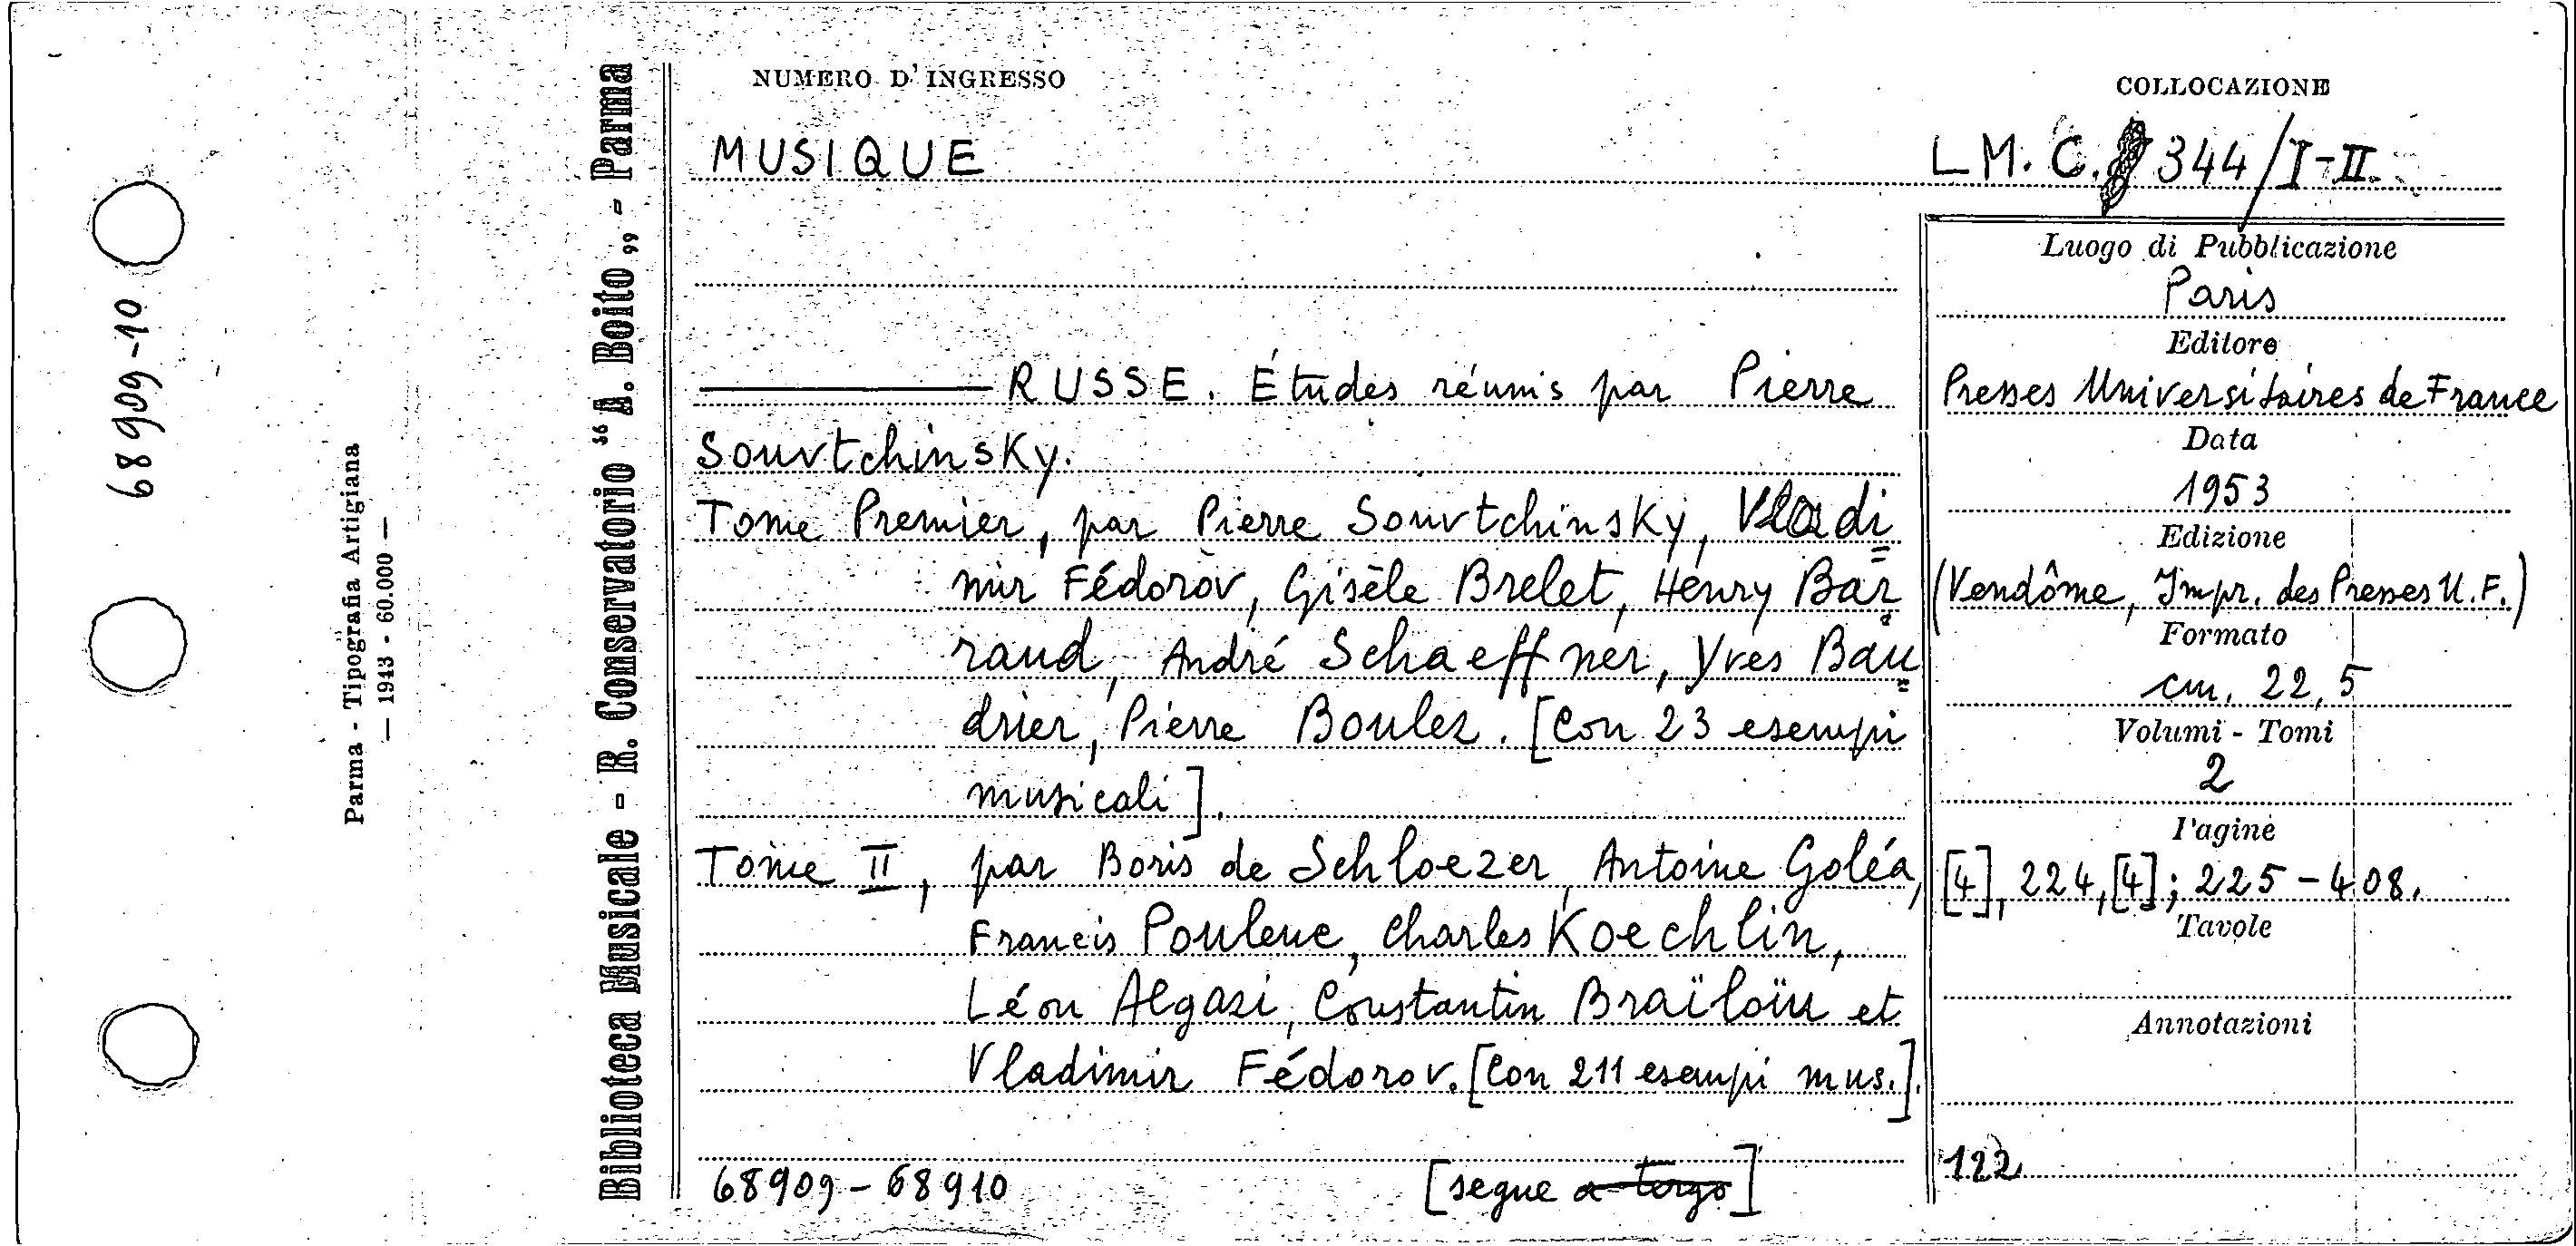 68909-10
Parma - Tipografia Artigiana
— 1943 - 60.000 —
Biblioteca Musicale - R. Conservatorio "A. Boito,, - Parma
NUMERO D'INGRESSO
MUSIQUE
——— RUSSE. Études réunis par Pierre
Souvtchinsky.
Tome Premier, par Pierre Souvtchinsky, Vladi=
mir Fédorov, Gisèle Brelet, Henry Bar=
raud, André Schaeffner, Yves Bau=
drier, Pierre Boulez. [Con 23 esempi
musicali].
Tome II, par Boris de Schloezer, Antoine Goléa,
Francis Poulenc, Charles Koechlin,
Léon Algazi, Constantin Braïloïu et
Vladimir Fédorov. [Con 211 esempi mus.].
68909-68910 [segue a tergo]
COLLOCAZIONE
L M. C. 344/I-II.
Luogo di Pubblicazione
Paris
Editore
Presses Universitaires de France
Data
1953
Edizione
(Vendôme, Impr. des Presses U.F.)
Formato
cm. 22,5
Volumi - Tomi
2
Pagine
[4], 224, [4]; 225-408.
Tavole
Annotazioni
122